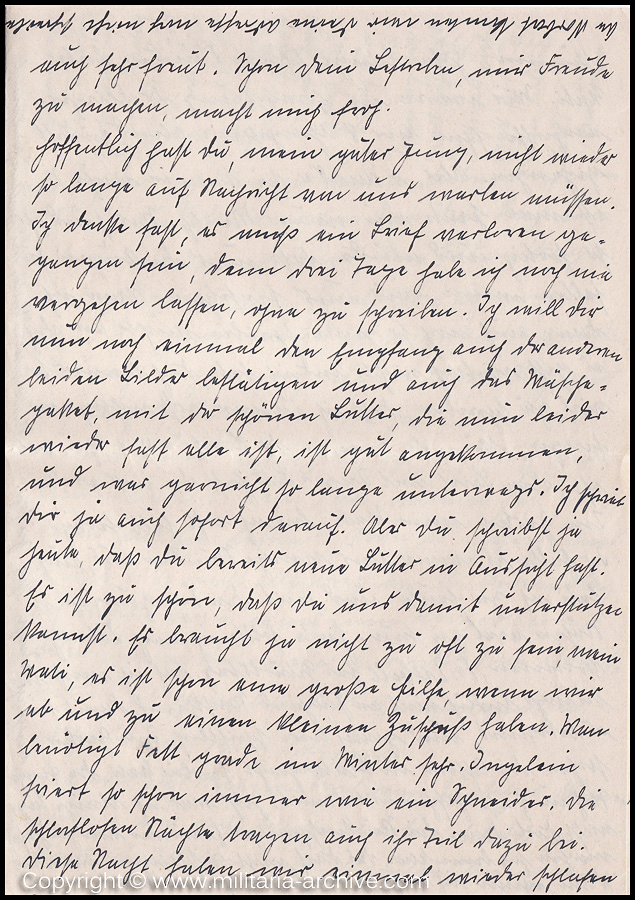 auch sehr freut. Schon Dein Bestreben, mir Freude
zu machen, macht mich froh.
Hoffentlich hast Du, mein guter Jung, nicht wieder
so lange auf Nachricht von uns warten müssen.
Ich denke fast, es muß ein Brief verloren ge-
gangen sein, denn drei Tage habe ich noch nie
vergehen lassen, ohne zu schreiben. Ich will Dir
nun noch einmal den Empfang auch der anderen
beiden Bilder bestätigen und auch das Wäsche-
paket, mit der schönen Butter, die nun leider
wieder fast alle ist, ist gut angekommen,
und war garnicht so lange unterwegs. Ich schrieb
Dir ja auch sofort darauf. Aber Du schreibst ja
heute, daß Du bereits neue Butter in Aussicht hast.
Es ist zu schön, daß Du uns damit unterstützen
kannst. Es braucht ja nicht zu oft zu sein, mein
Vati, es ist schon eine große Hilfe, wenn wir
ab und zu einen kleinen Zuschuß haben. Man
benötigt Fett grade im Winter sehr. Ingelein
friert so schon immer wie ein Schneider. Die
schlaflosen Nächte tragen auch ihr Teil dazu bei.
Diese Nacht haben wir einmal wieder schlafen
Copyright © www.militaria-archive.com